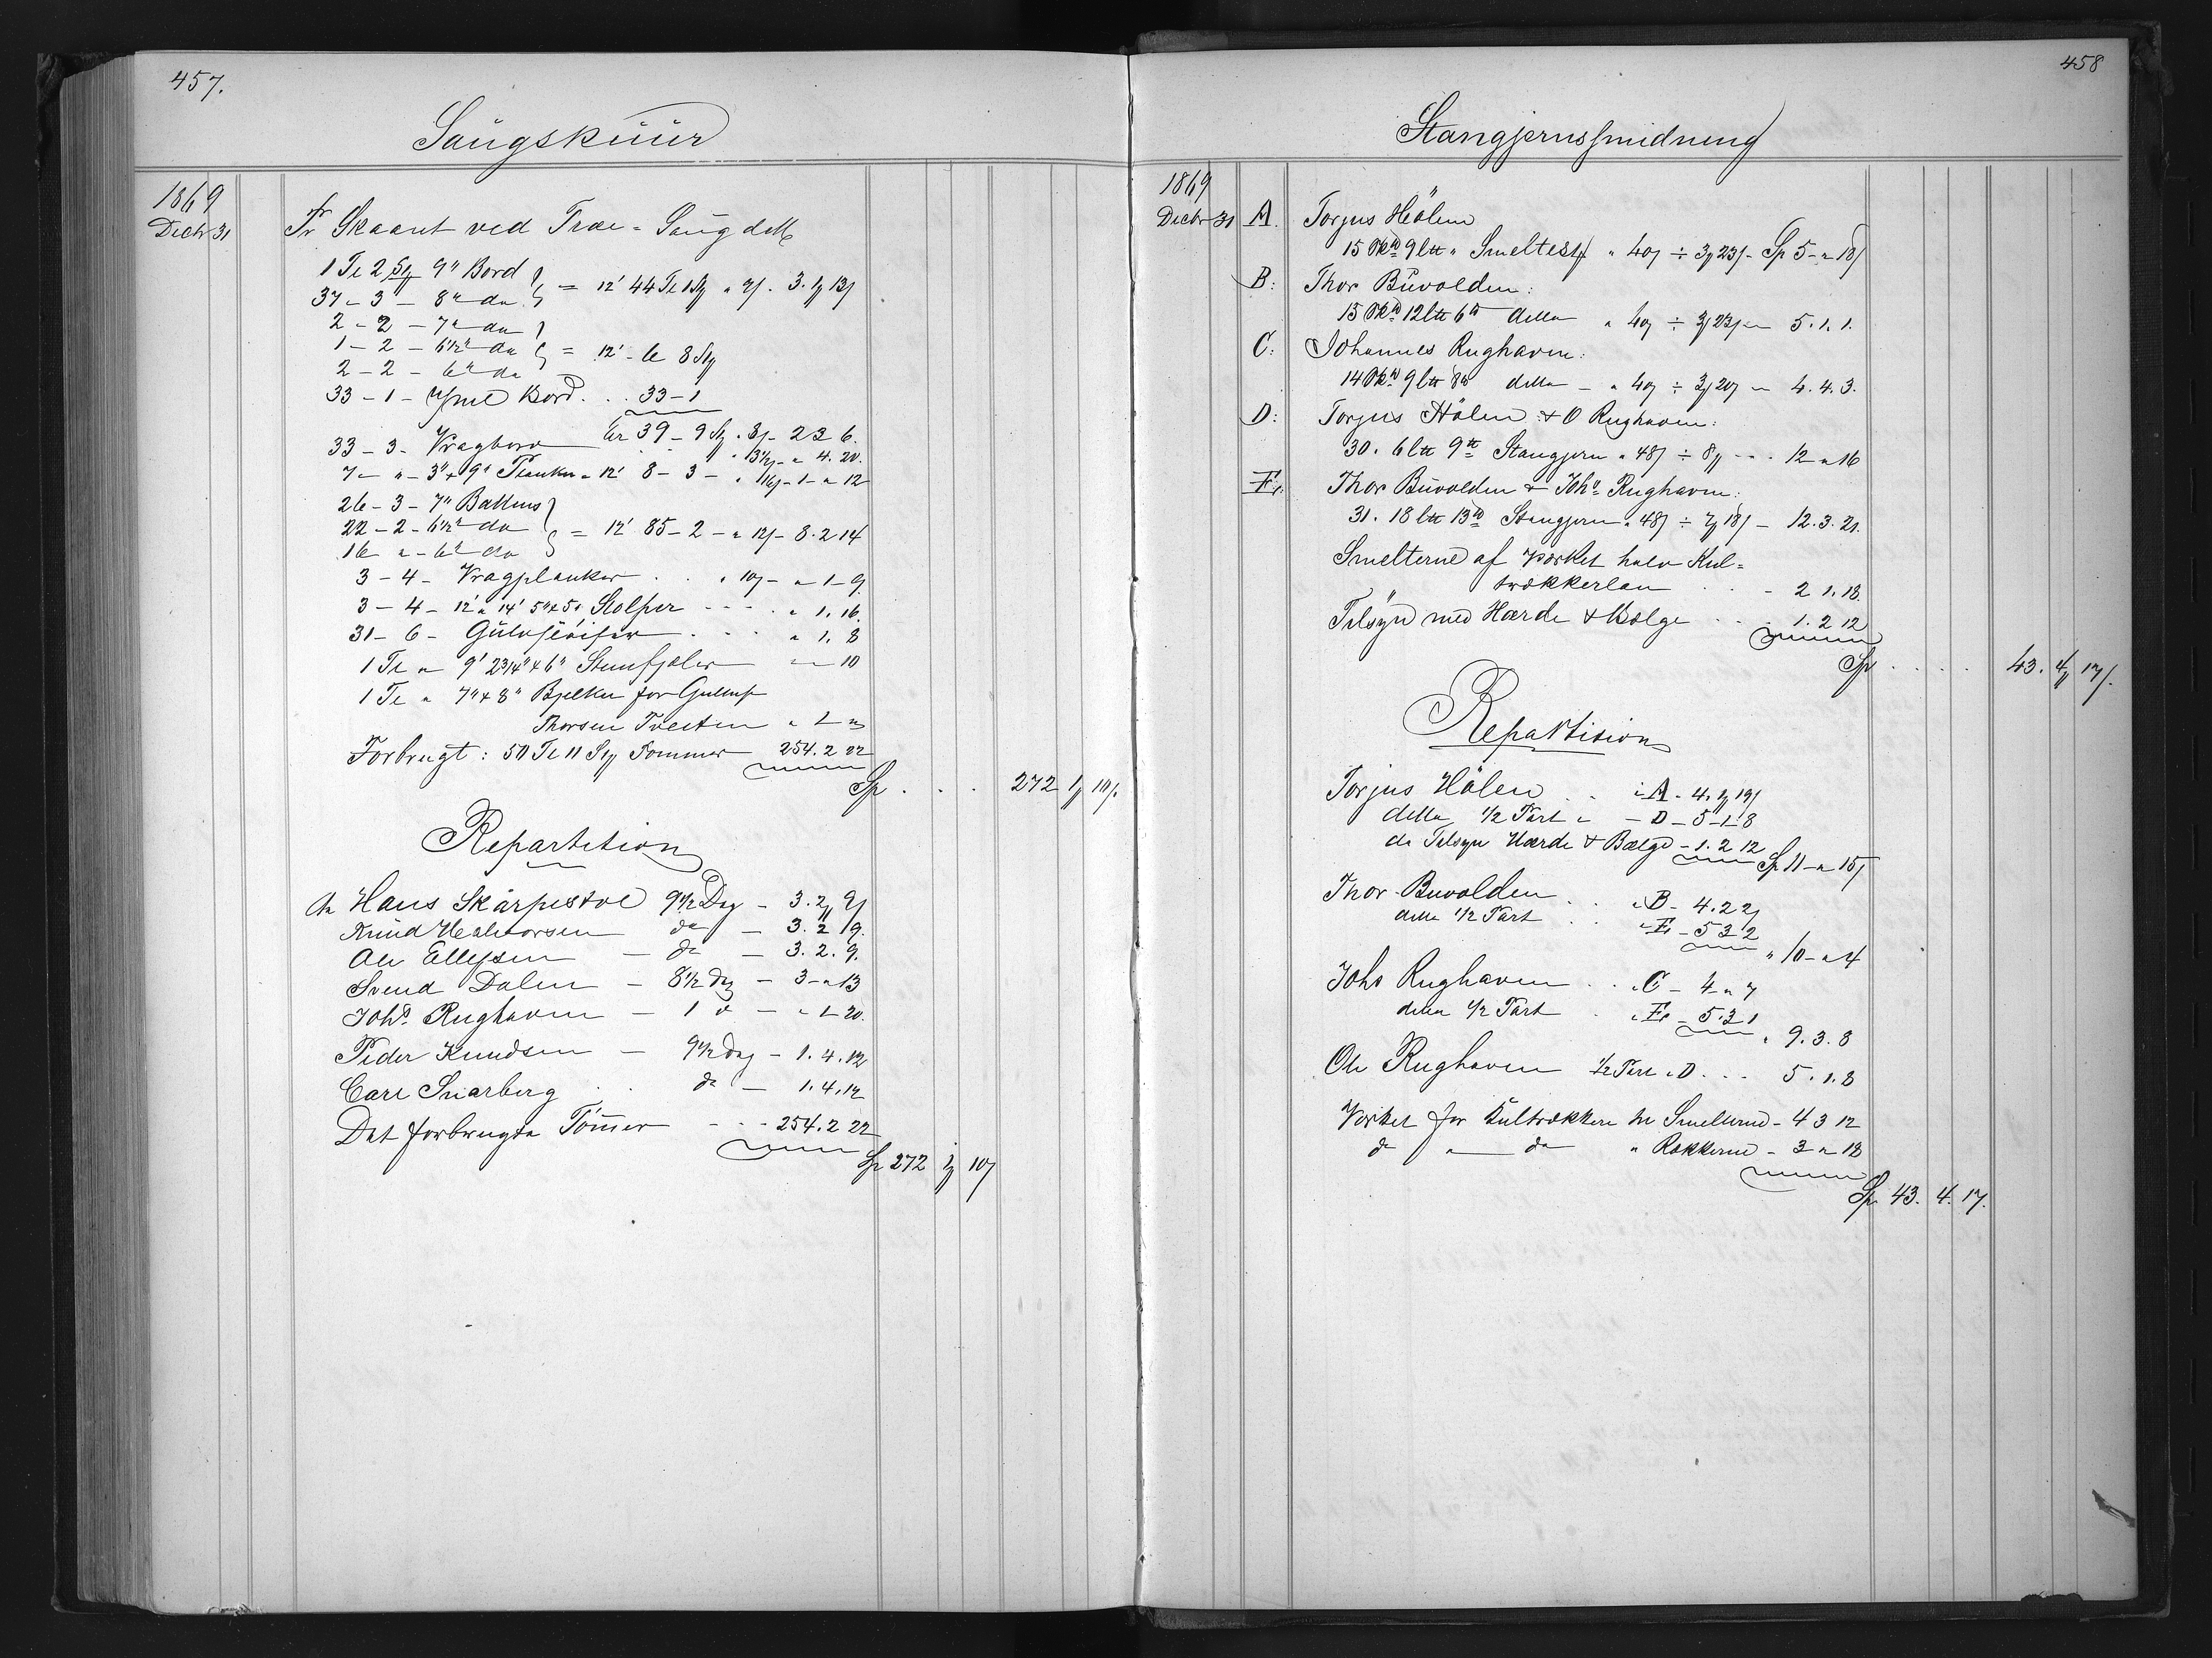 457.
Saugskuur
1869
Decbr 31
Fr Skaaret ved Træ-Saug dette
1 Te 2 St 9" Bord
37 - 3 - 8" do = 12' 44 Te 1 St " 9/. 3. 1 13/
2 - 2 - 7" do
1 - 2 - 6 1/2" do = 12' - 6 8 St
2 - 2 - 6" do
33 - 1 - Bord . . 33 - 1
39 - 9 St " 8/ - 2 3 6.
33 - 3 - Vragbord . . " 3 1/2/ - " 4. 20.
7 - " - 3" x 9" Planker = 12' 8 - 3 - " 16/ - 1 - " 12
26 - 3 - 7" Battens
22 - 2 - 6 1/2" do = 12' 85 - 2 - " 12/ - 8. 2 14
16 " - 6" do
3 - 4 - Vragplanker . . " 10/ - " 1 - 9
3 - 4 - 12' a 14' 5" x 5" Stolper - - - . " 1. 16.
31 - 6 - . . . " 1. 8
1 Te " 9' 2 3/4" x 6" " - 10
1 Te " 7" x 8" Bjelker for
Thorsen Tveiten " 1 "
Forbrugt: 50 Te 11 St Tømmer 254. 2 22
Sp . . . 272 1 10/.
Repartition
Hans Skarpestol 9 1/2 Dag - 3. 2 9/
Knud Halvorsen do - 3. 2 9.
Ole Ellefsen - do - 3. 2. 9.
Svend Dalen - 8 1/2 Dag - 3 - " 13
Johs Rughaven - 1 d - " 1 20.
Peder Knudsen - 9 1/2 Dag - 1. 4. 12
Carl Snarberg . . do - 1. 4. 12
Det forbrugte Tømmer - - - 254. 2 22
Sp 272 1 10/
458
Stangjernssmidning
1869
Decbr 31 A. Torjus Hölen
15 Skd 9 Ltt " Smeltest " 40/ ÷ 3 23/ - Sp 5 - " 18/
B: Thor Buvolden:
15 Skd 12 Ltt 6 tt detto " 40/ ÷ 3 23/ - 5. 1. 1.
C: Johannes Rughaven:
14 Skd 9 Ltt 8 tt detto - " 40/ ÷ 3 20/ - 4. 4. 3.
D: Torjus Hölen & O Rughaven:
30. 6 Ltt 9 tt Stangjern " 48/ ÷ 8/ - . . 12 " 16
E. Thor Buvolden & Johs Rughaven:
31. 18 Ltt 13 tt Stangjern " 48/ ÷ 7 18/ - 12. 3. 21.
Smelterne af Værket halv Kul=
trækkerløn . . - 2 1. 18.
Tilsyn med Hærde & Bælge . . . 1. 2 12
Sp . . . . 43. 4 17/.
Repartision
Torjus Hölen . . i A - 4. 1 19/
detto 1/2 Part i - D - 5 - 1 - 8
do Tilsyn Hærde & Bælge - 1. 2 12 Sp 11 - " 15/
Thor Buvolden . . i B - 4. 2 2/
detto 1/2 Part . . i E - 5 3 2 " 10 - " 4
Johs Rughaven . . i C - 4 " 7
detto 1/2 Part . i E - 5. 3 1 " 9. 3. 8
Ole Rughaven 1/2 Part i D . . . 5. 1. 8
Værket for Kultrækken til Smelterne - 4 3 12
do " do " Rækkerne - 3 " 18
Sp. 43. 4. 17.